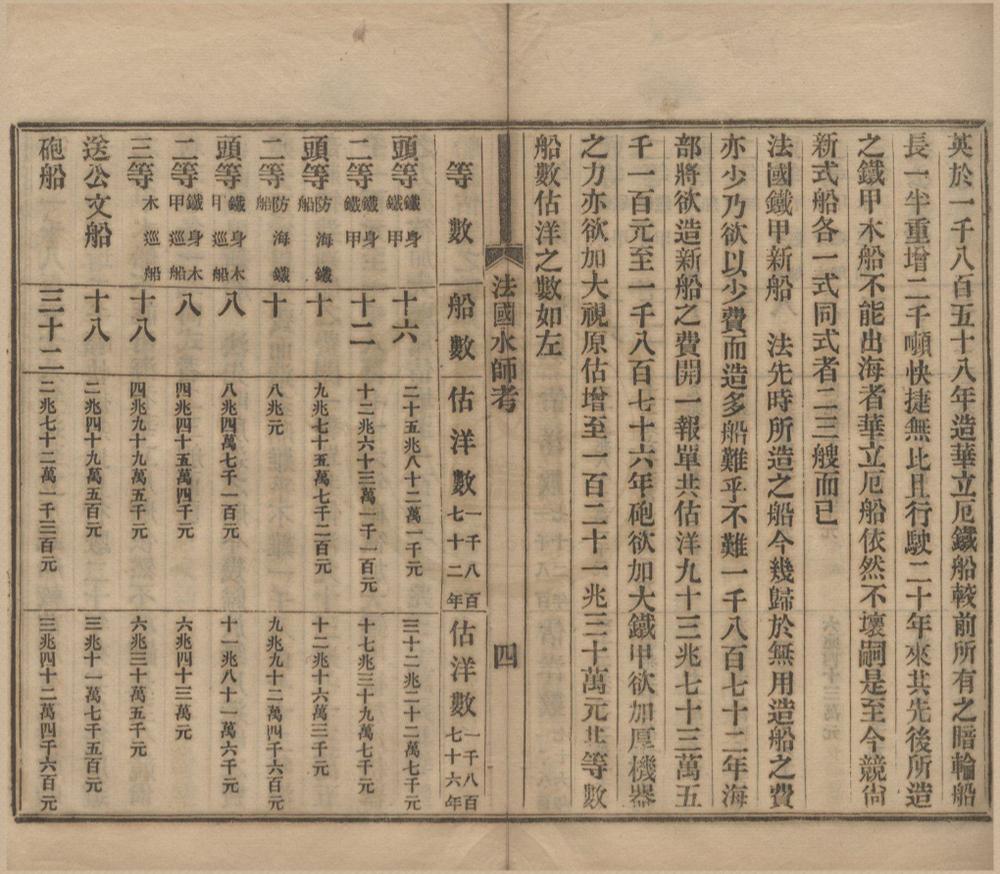 英於一千八百五十八年造華立厄鐵船較前所有之暗輪船
長一半重增二千噸快捷無比且行駛二十年來其先後所造
之鐵甲木船不能出海者華立厄船依然不壞嗣是至今競尙
新式船各一式同式者二三艘而已
法國鐵甲新船　法先時所造之船今幾歸於無用造船之費
亦少乃欲以少費而造多船難乎不難一千八百七十二年海
部將欲造新船之費開一報單共估洋九十三兆七十三萬五
千一百元至一千八百七十六年砲欲加大鐵甲欲加厚機器
之力亦欲加大視原估增至一百二十一兆三十萬元其等數
船數估洋之數如左
法國水師考　四
等數　船數　估洋數一千八百七十二年　估洋數一千八百七十六年
頭等鐵身鐵甲　十六　二十五兆八十二萬一千元　三十二兆二十二萬七千元
二等鐵身鐵甲　十二　十二兆六十三萬一千一百元　十七兆三十九萬七千元
頭等防海鐵船　十　九兆七十五萬七千二百元　十二兆十六萬三千元
二等防海鐵船　十　八兆元　九兆九十二萬四千六百元
頭等鐵身木甲巡船　八　八兆四萬七千一百元　十一兆八十一萬六千元
二等鐵身木甲巡船　八　四兆四十五萬四千元　六兆四十三萬元
三等木巡船　十八　四兆九十九萬五千元　六兆三十萬五千元
送公文船　十八　二兆四十九萬五百元　三兆十一萬七千五百元
砲船　三十二　二兆七十二萬一千三百元　三兆四十二萬四千六百元